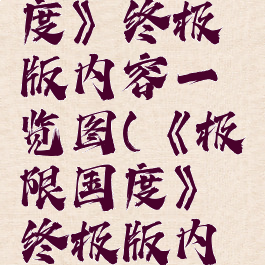 度》终极
版内容一
览图(《极
限国度》
终极版内